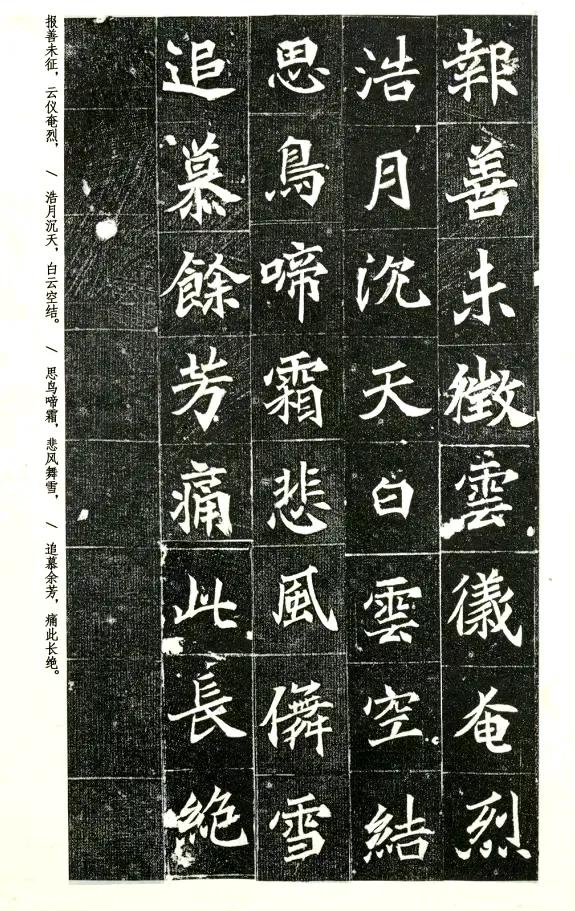 報善未徵雲儀奄烈
浩月沉天白雲空結
思鳥啼霜悲風儛雪
追慕餘芳痛此長絶
报善未征，云仪奄烈， / 浩月沉天，白云空结。 / 思鸟啼霜，悲风舞雪， / 追慕余芳，痛此长绝。